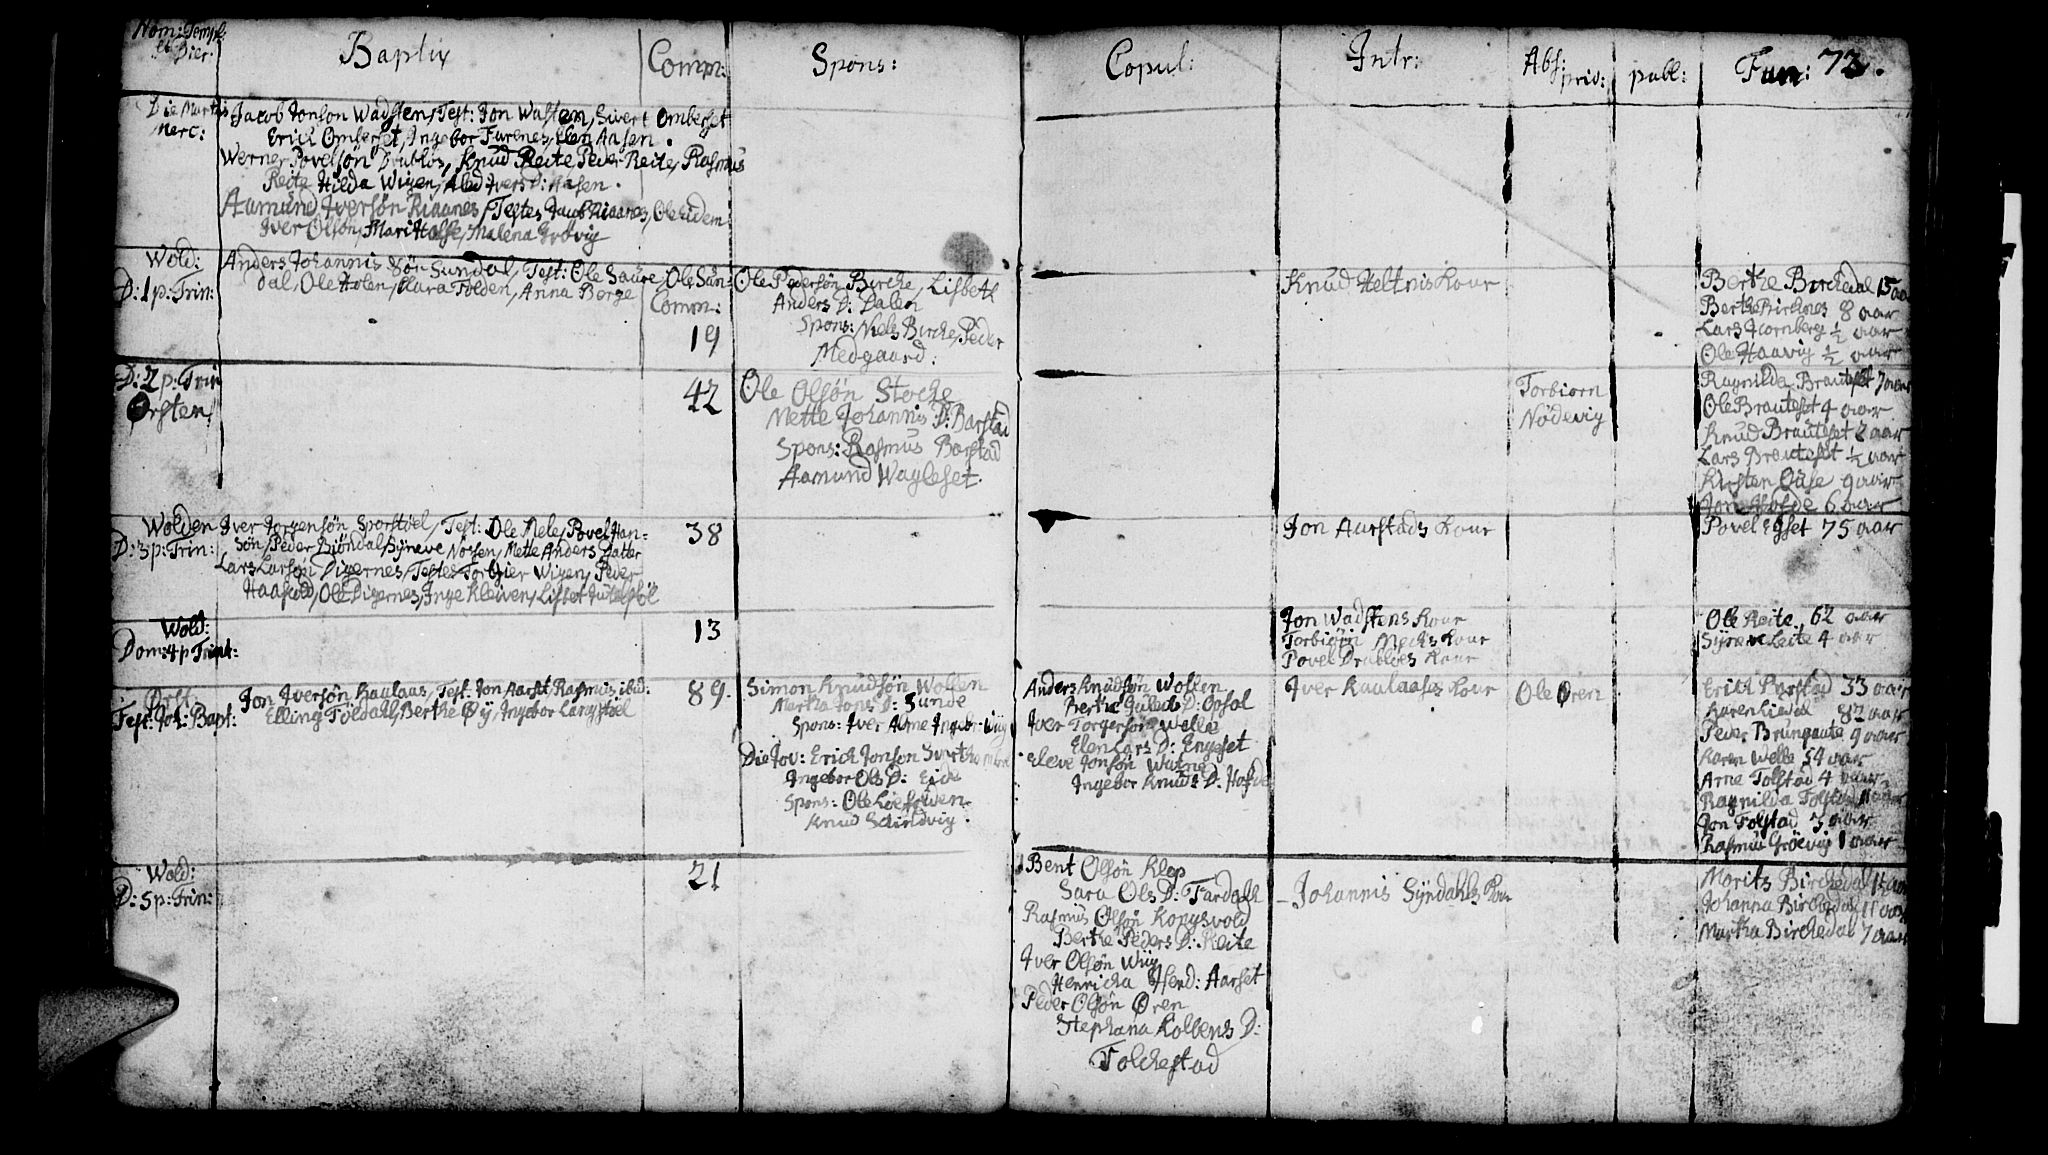 Nom: Templ:
et Dier:
Baptiz
Comm:
Spons:
Copul:
Intr:
Abs: priv:
publ:
Fun: 72.
Die Martis
Merc:
Jacob Jonson Wadsten, Test: Jon Wasten, Sivert Omberset
Erich Omberset, Ingebor Furenes, Aasen.
Werner Povelsøn Drabløs, Knud Reite Peder Reite, Rasmus
Reite Hilda Wigen, Ivers D: Aasen.
Aamund Iversøn Riaanes, Testes Jacob Riaanes, Ole idem
Iver Olsøn, Mari Hasse, Malena Grøvig
Wold:
D: 1 p: Trin:
Anders Johannis Søn Sundal, Test: Ole Saure, Ole Sun-
dal, Ole Holen, Clara Folden, Anna Berge
Comm:
19
Ole Pedersøn Birche, Lisbeth
Anders D: Dalen
Spons: Niels Birche, Peder
Medgaard.
Knud Heltnis Kone
Berthe Birchedal 15 aar
Berthe 8 aar
Lars ½ aar
Ole Haavig ½ aar
D: 2 p: Trin
Ørsten
42
Ole Olsøn Stoche
Mette Johannis D: Barstad
Spons: Rasmus Barstad
Aamund Wagleset.
Torbiorn
Nødevig
Ragnilda Brauteset 7 aar
Ole Brauteset 4 aar
Knud Brauteset 2 aar
Lars Brauteset ½ aar
Kirsten Ouse 9 aar
Jon Hofde 6 aar
Wolden
D: 3 p: Trin:
Iver Jorgensøn Sporstøel, Test: Ole Mele, Povel Han-
søn, Peder Biøndal, Synneve Nossen, Mette Anders Datter
Lars Larsøn Digernes, Testes Torbier Wigen, Peder
Haaskold, Ole Digernes, Inge Kleiven, Lisbet
38
Jon Aarstads Kone
Povel Egset 75 aar
Wold:
Dom: 4 p Trinit:
13
Jon Wadstens Kone
Torbiøn Kone
Povel Drabløes Kone
Ole Reite 62 aar
Synneve Leite 4 aar
Ørst:
Fest: Joh: Bapt:
Jon Iversøn Kaulaas, Test: Jon Aarset, Rasmus ibid:
Elling Foldahl, Berthe Øy, Ingebor Langstøel
89.
Simon Knudsøn Wollen
Martha Jons D: Sunde
Spons: Iver Aarne
Die Jov: Erich Jonson
Ingebor Ols D: Eide
Spons: Ole
Knud
Anders Knudsøn Wollen
Berthe D: Opsal
Iver Torgersøn Welle
Elen Lars D: Engeset
Eleve Jonsøn Watne
Ingebor Knuds D: Hofde
Iver Kaulaases Kone
Ole Øren
Erich 33 aar
Karen Liedal 82 aar
Peder Brungaute 9 aar
Karen Welle 54 aar
Arne Tolstad 4 aar
Ragnilda Tolstad aar
Jon Tolstad 3 aar
Rasmus Grøevig 1 aar
Wold:
D: 5 p: Trin:
21
Bent Olsøn Klep
Sara Ols D: Fardahl
Rasmus Olsøn Kongsvold
Berthe Peders D: Reite
Iver Olsøn Wiig
Henricha Hend: Aarset
Peder Olsøn Øren
Stephana Kolbens D:
Folchestad
Johannis Syndahls Kone
Morits Birchedal aar
Johanna Birchedal 11 aar
Martha Birchedal 7 aar